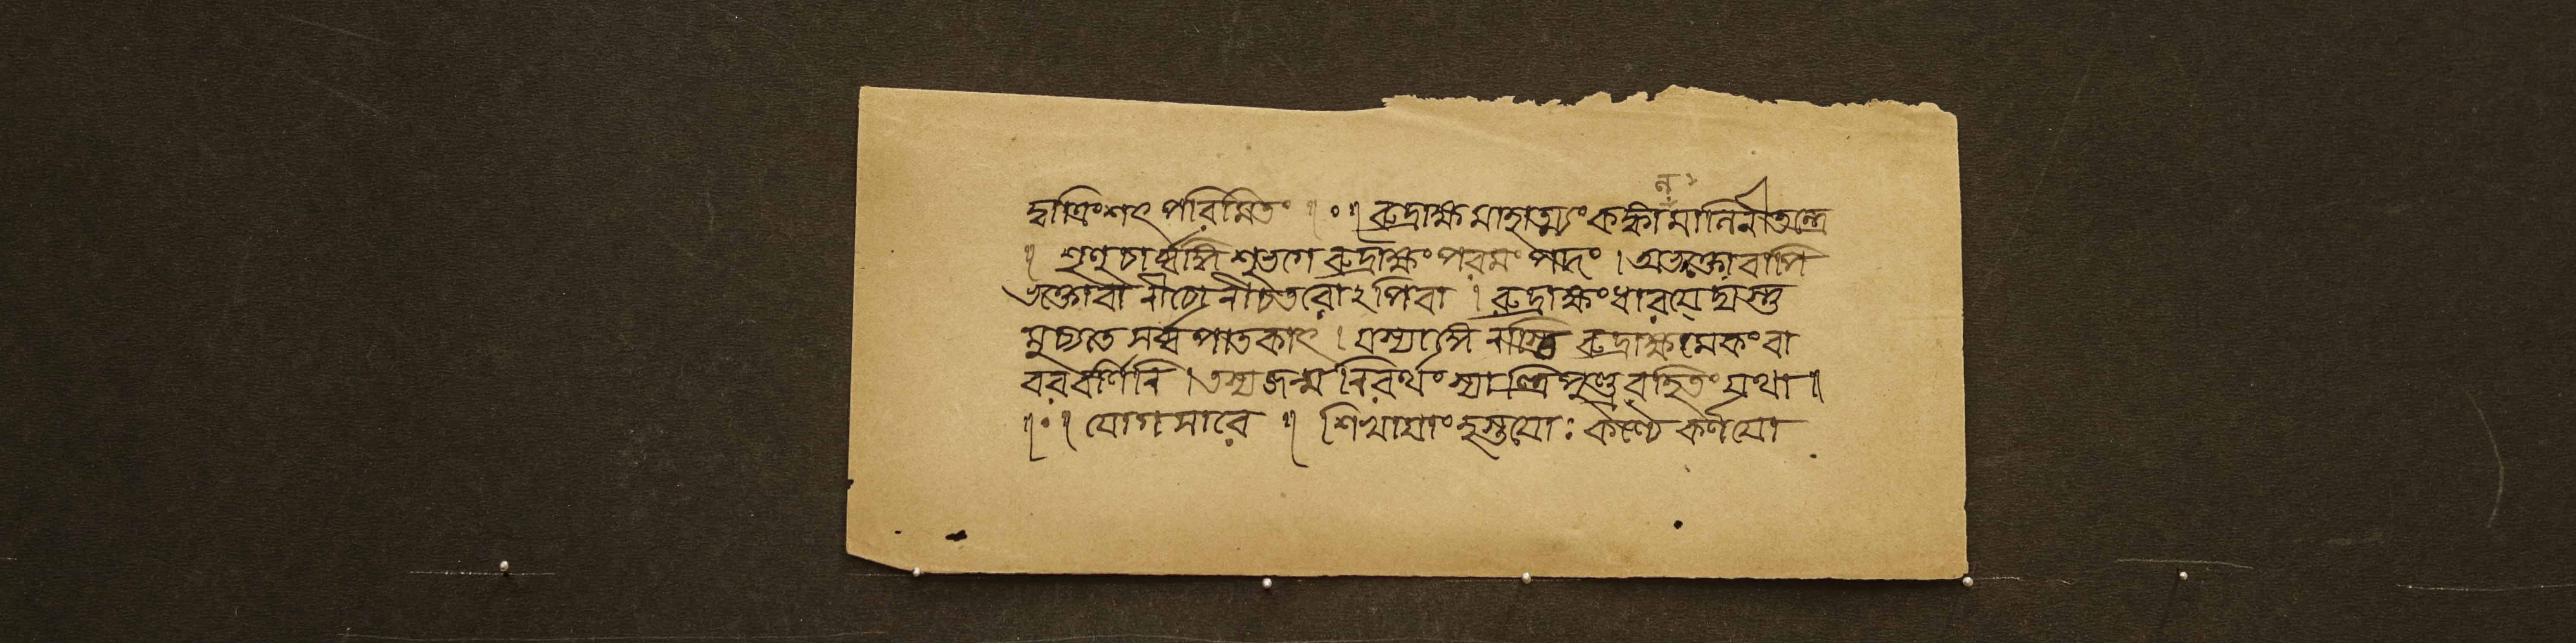 দ্বাত্রিংশৎ পরিমিতং ॥ ০ ॥ রুদ্রাক্ষ মাহাত্ম্যং কঙ্কালমালিনীতন্ত্রে
॥ শৃণু চার্ব্বঙ্গি শুভগে রুদ্রাক্ষং পরমং পদং । অভক্তো বাপি
ভক্তো বা নীচো নীচতরোঽপি বা । রুদ্রাক্ষং ধারয়েদ্যস্তু
মুচ্যতে সর্ব্বপাতকাৎ । যস্যাঙ্গে নাস্তি রুদ্রাক্ষমেকং বা
বরবর্ণিনি । তস্য জন্ম নিরর্থং স্যাৎ ত্রিপুণ্ড্ররহিতং যথা ॥
॥ ০ ॥ যোগসারে ॥ শিখায়াং হস্তয়োঃ কণ্ঠে কর্ণয়ো